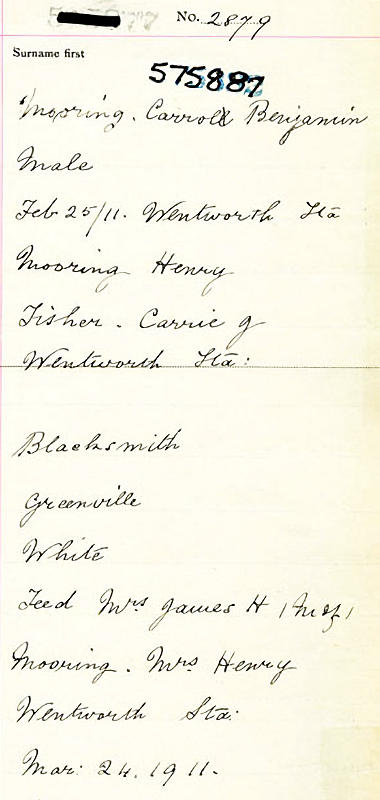 No. 2879
Surname first
575887
Mooring. Carroll Benjamin
Male
Feb 25/11. Wentworth Sta
Mooring Henry
Fisher. Carrie J
Wentworth Sta:
Blacksmith
Greenville
White
Teed Mrs James H
Mooring. Mrs Henry
Wentworth Sta:
Mar: 24. 1911.